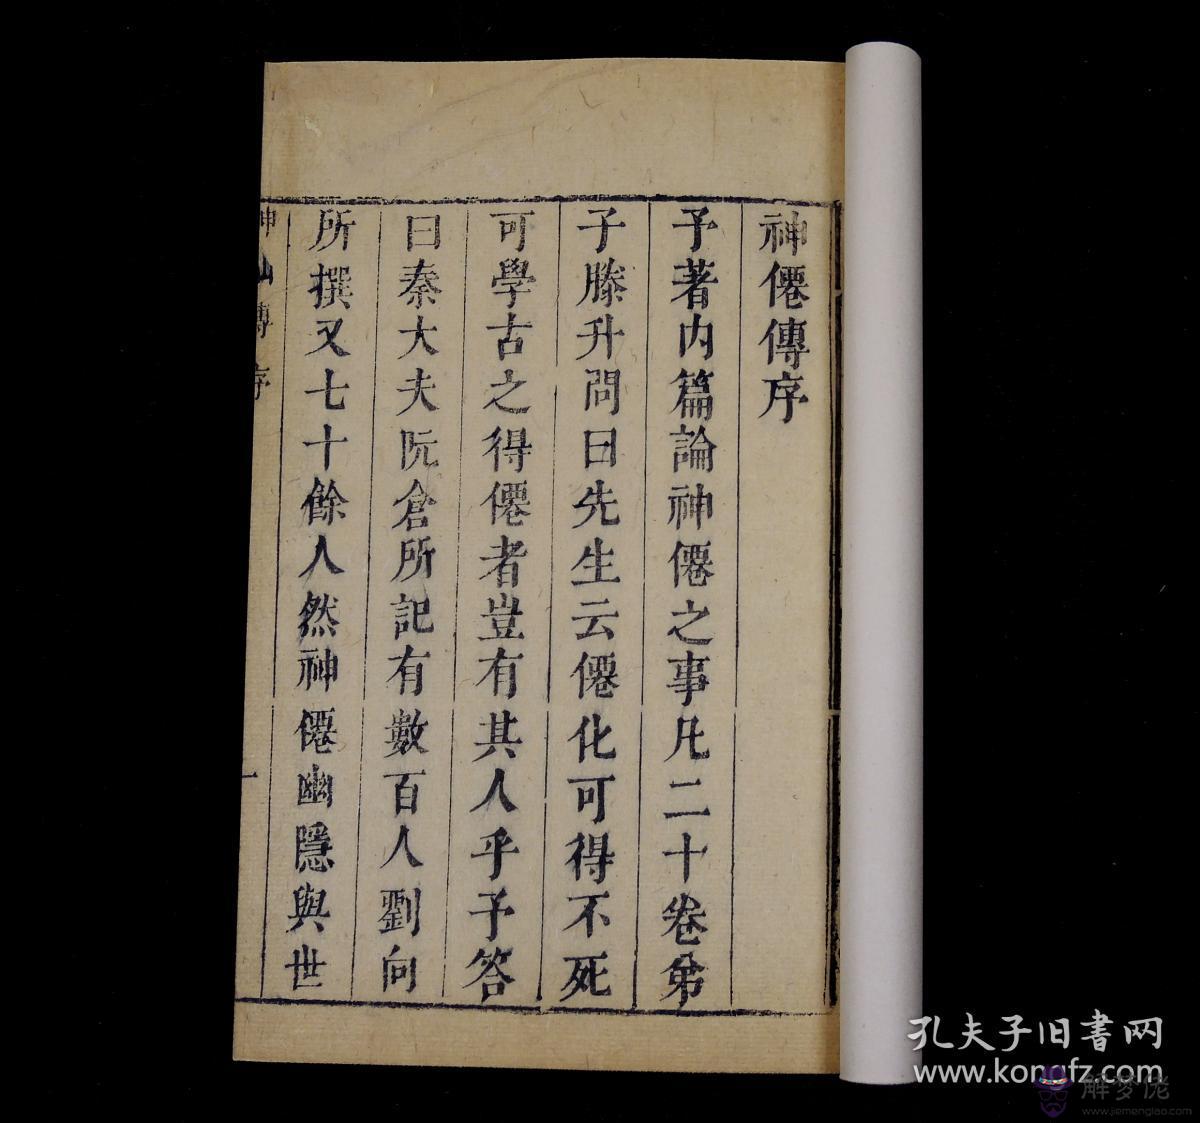 神僊傳序
予著内篇論神僊之事凡二十卷弟
子滕升問曰先生云僊化可得不死
可學古之得僊者豈有其人乎予答
曰秦大夫阮倉所記有數百人劉向
所撰又七十餘人然神僊幽隱與世
神仙傳序
一
孔夫子旧書网
www.kongfz.com
解梦佬
www.jiemenglao.com